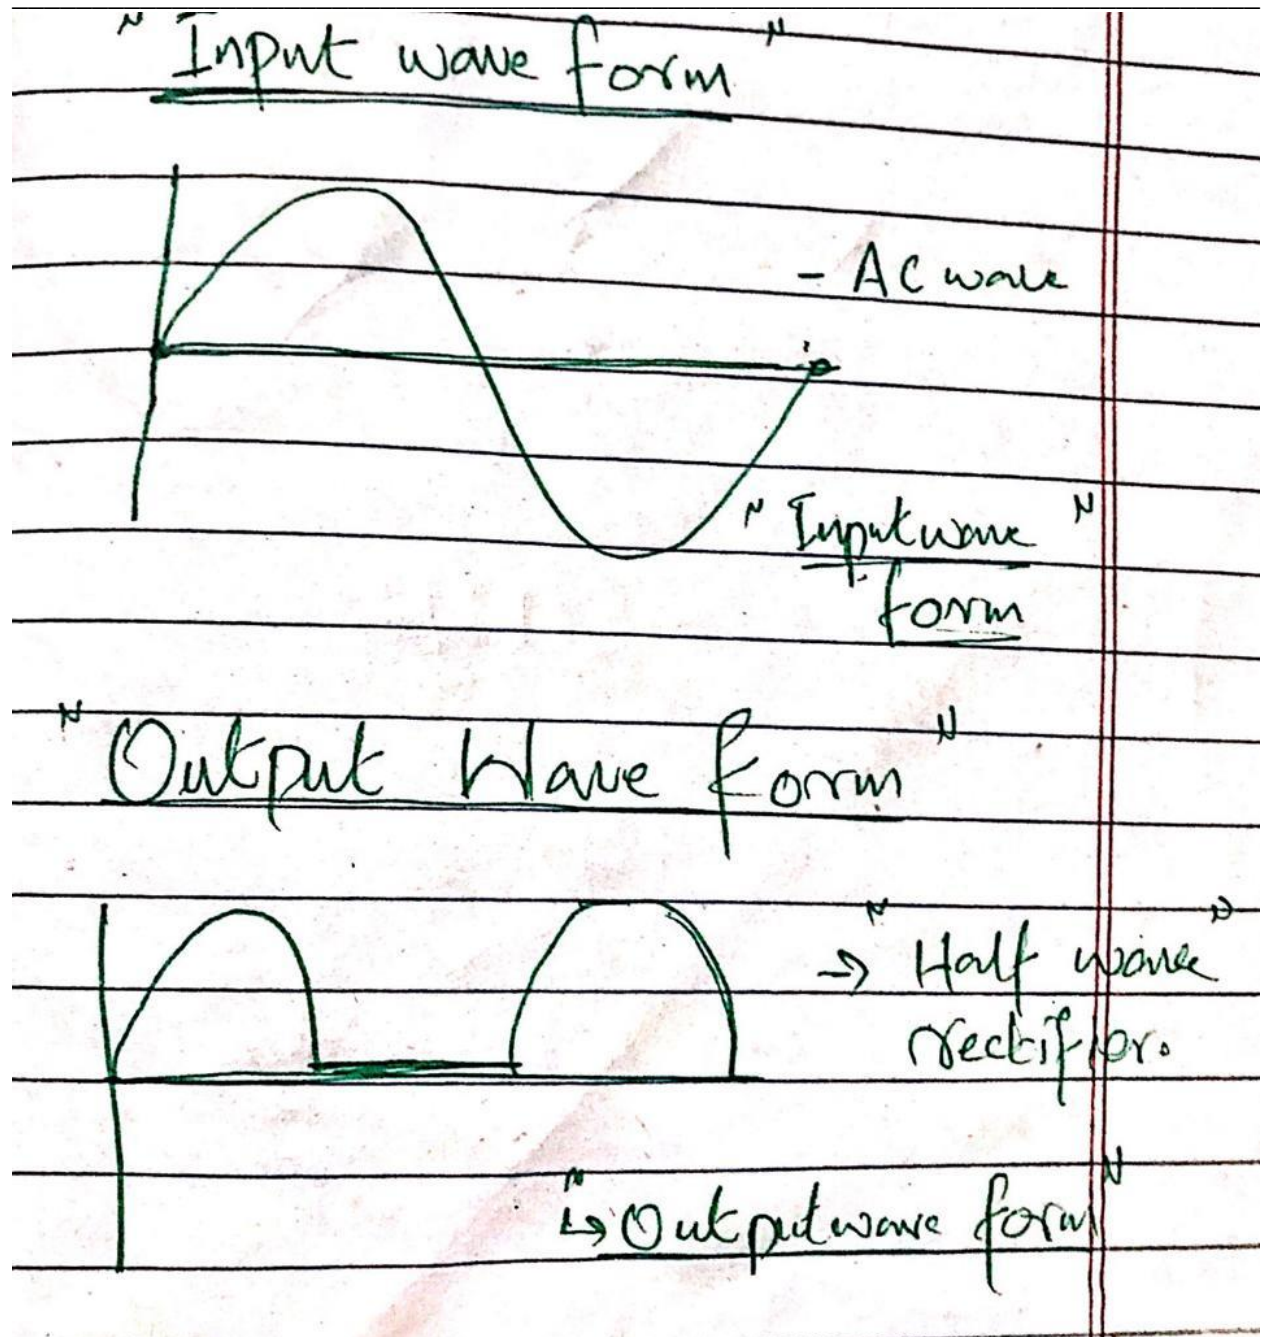 "Input wave form"
- AC wave
"Input wave"
form
"Output Wave form"
→ "Half wave"
rectifier.
"↳ Output wave form"